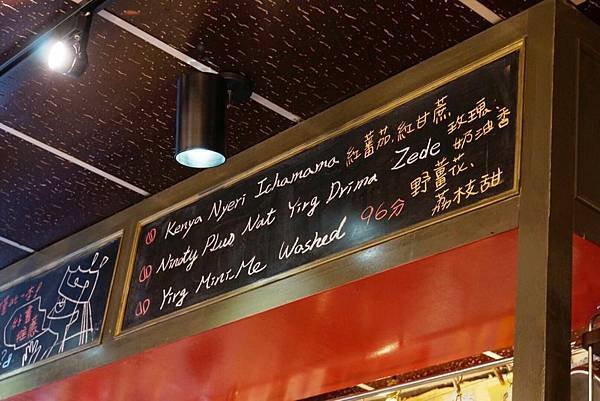 ① Kenya Nyeri Ichamama 紅蕃茄、紅甘蔗
① Ninety Plus Nat Yirg Drima Zede 玫瑰、奶油香
① Yirg Mini-Me Washed 96分 野薑花、荔枝甜